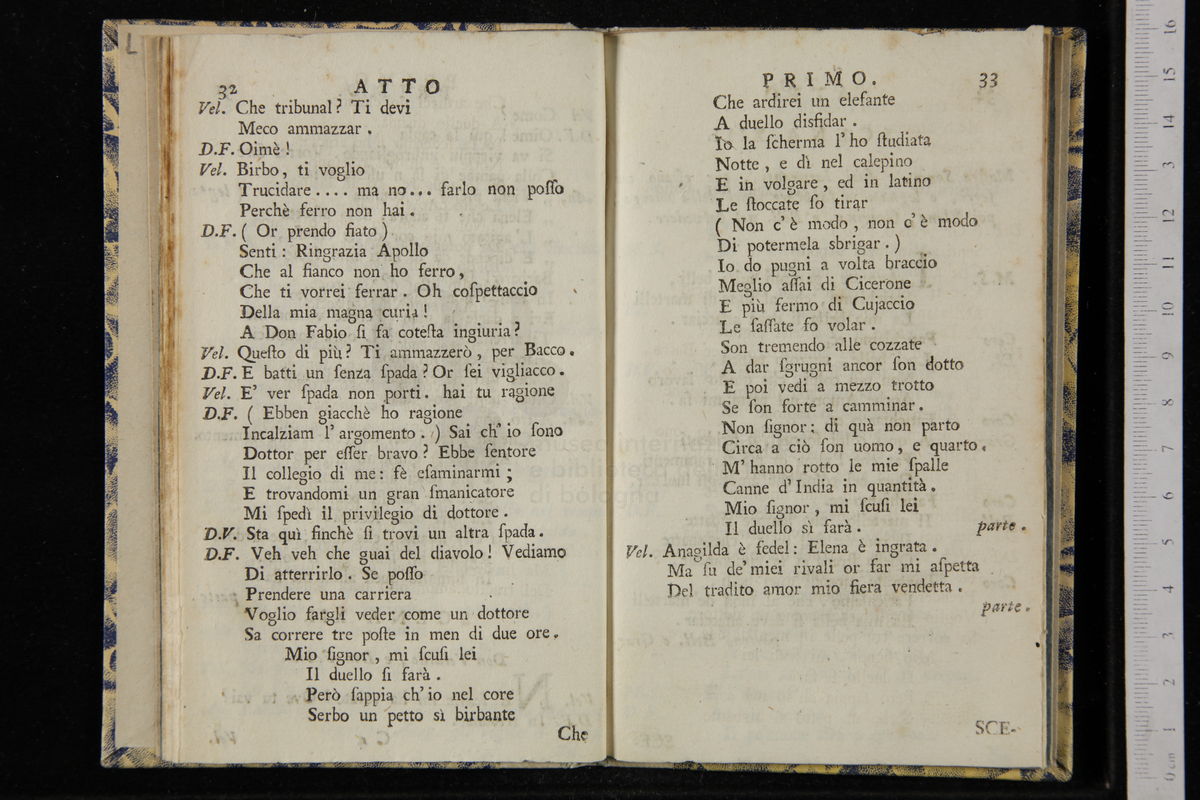 32 ATTO
Vel. Che tribunal? Ti devi
Meco ammazzar.
D.F. Oimè!
Vel. Birbo, ti voglio
Trucidare.... ma no... farlo non poſſo
Perchè ferro non hai.
D.F. ( Or prendo fiato )
Senti: Ringrazia Apollo
Che al fianco non ho ferro,
Che ti vorrei ferrar. Oh coſpettaccio
Della mia magna curia!
A Don Fabio ſi fa coteſta ingiuria?
Vel. Queſto di più? Ti ammazzerò, per Bacco.
D.F. E batti un ſenza ſpada? Or ſei vigliacco.
Vel. E' ver ſpada non porti. hai tu ragione
D.F. ( Ebben giacchè ho ragione
Incalziam l'argomento. ) Sai ch'io ſono
Dottor per eſſer bravo? Ebbe ſentore
Il collegio di me: fè eſaminarmi;
E trovandomi un gran ſmanicatore
Mi ſpedì il privilegio di dottore.
D.V. Sta quì finchè ſi trovi un altra ſpada.
D.F. Veh veh che guai del diavolo! Vediamo
Di atterrirlo. Se poſſo
Prendere una carriera
Voglio fargli veder come un dottore
Sa correre tre poſte in men di due ore.
Mio ſignor, mi ſcuſi lei
Il duello ſi farà.
Però ſappia ch'io nel core
Serbo un petto sì birbante
Che
PRIMO. 33
Che ardirei un elefante
A duello disfidar.
Io la ſcherma l'ho ſtudiata
Notte, e dì nel calepino
E in volgare, ed in latino
Le ſtoccate ſo tirar
( Non c'è modo, non c'è modo
Di potermela sbrigar. )
Io do pugni a volta braccio
Meglio aſſai di Cicerone
E più fermo di Cujaccio
Le ſaſſate fo volar.
Son tremendo alle cozzate
A dar ſgrugni ancor ſon dotto
E poi vedi a mezzo trotto
Se ſon forte a camminar.
Non ſignor: di quà non parto
Circa a ciò ſon uomo, e quarto.
M'hanno rotto le mie ſpalle
Canne d'India in quantità.
Mio ſignor, mi ſcuſi lei
Il duello sì farà. parte.
Vel. Anagilda è fedel: Elena è ingrata.
Ma ſu de'miei rivali or far mi aſpetta
Del tradito amor mio fiera vendetta.
parte.
SCE-